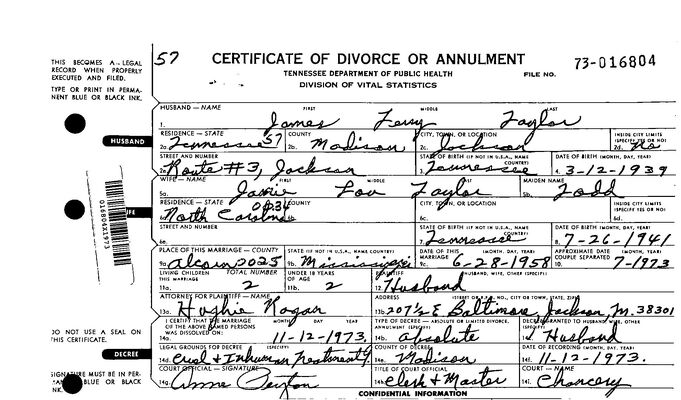 THIS BECOMES A LEGAL
RECORD WHEN PROPERLY
EXECUTED AND FILED.
TYPE OR PRINT IN PERMA-
NENT BLUE OR BLACK
INK.
57 CERTIFICATE OF DIVORCE OR ANNULMENT 73-016804
TENNESSEE DEPARTMENT OF PUBLIC HEALTH FILE NO.
DIVISION OF VITAL STATISTICS
HUSBAND — NAME FIRST MIDDLE LAST
1. James Terry Taylor
HUSBAND
RESIDENCE — STATE COUNTY CITY, TOWN, OR LOCATION INSIDE CITY LIMITS (SPECIFY YES OR NO)
2a. Tennessee 57 2b. Madison 2c. Jackson 2d. no
STREET AND NUMBER STATE OF BIRTH (IF NOT IN U.S.A., NAME COUNTRY) DATE OF BIRTH (MONTH, DAY, YEAR)
2e. Route #3, Jackson 3. Tennessee 4. 3-12-1939
WIFE — NAME FIRST MIDDLE LAST MAIDEN NAME
5a. Lou Taylor 5b. Todd
016804X1973
RESIDENCE — STATE COUNTY CITY, TOWN, OR LOCATION INSIDE CITY LIMITS (SPECIFY YES OR NO)
6a. North Carolina 6b. 6c. 6d.
STREET AND NUMBER STATE OF BIRTH (IF NOT IN U.S.A., NAME COUNTRY) DATE OF BIRTH (MONTH, DAY, YEAR)
6e. 7. Tennessee 8. 7-26-1941
PLACE OF THIS MARRIAGE — COUNTY STATE (IF NOT IN U.S.A., NAME COUNTRY) DATE OF THIS MARRIAGE (MONTH, DAY, YEAR) APPROXIMATE DATE COUPLE SEPARATED (MONTH, YEAR)
9a. Alcorn 2025 9b. Mississippi 9c. 6-28-1958 10. 7-1973
LIVING CHILDREN TOTAL NUMBER UNDER 18 YEARS OF AGE PLAINTIFF HUSBAND, WIFE, OTHER (SPECIFY)
11a. 2 11b. 2 12. Husband
ATTORNEY FOR PLAINTIFF — NAME ADDRESS STREET OR R.F.D. NO., CITY OR TOWN, STATE, ZIP
13a. Hughie Ragan 13b. 207½ E Baltimore, Jackson, 38301
DO NOT USE A SEAL ON
THIS CERTIFICATE.
I CERTIFY THAT THE MARRIAGE OF THE ABOVE NAMED PERSONS WAS DISSOLVED ON: MONTH DAY YEAR TYPE OF DECREE — ABSOLUTE OR LIMITED DIVORCE, ANNULMENT (SPECIFY) DECREE GRANTED TO HUSBAND, WIFE, OTHER (SPECIFY)
14a. 11-12-1973 14b. absolute Husband
DECREE
LEGAL GROUNDS FOR DECREE (SPECIFY) COUNTY OF DECREE DATE OF RECORDING (MONTH, DAY, YEAR)
14d. Cruel & Inhuman Treatment 14e. Madison 14f. 11-12-1973.
SIGNATURE MUST BE IN PER-
BLUE OR BLACK
INK.
COURT OFFICIAL — SIGNATURE TITLE OF COURT OFFICIAL COURT — NAME
14g. Peyton 14h. Clerk & Master 14i. Chancery
CONFIDENTIAL INFORMATION